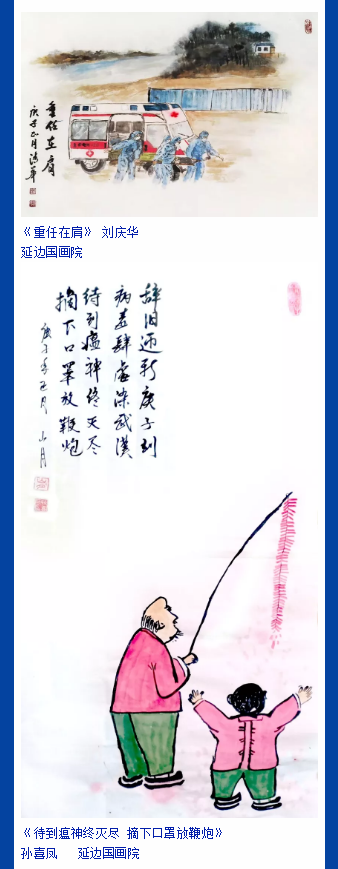 重任在肩
庚子正月 清華
《重任在肩》 刘庆华
延边国画院
辞旧迎新庚子到
病毒肆虐染武漢
待到瘟神终灭尽
摘下口罩放鞭炮
庚子年正月 山月
《待到瘟神终灭尽 摘下口罩放鞭炮》
孙喜凤 延边国画院